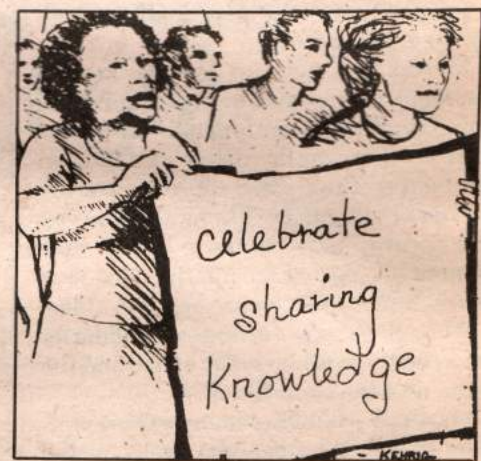 celebrate
sharing
Knowledge
- KEHRIG